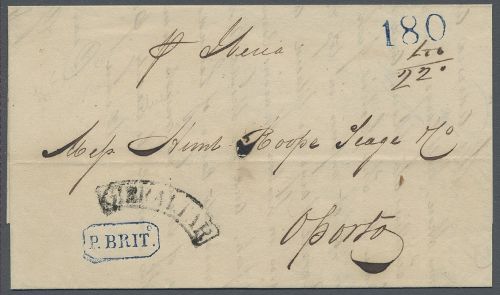 180
p Iberia
220
Mess Hunt Roope Teage & Co
GIBRALTAR
P. BRIT.º
Oporto